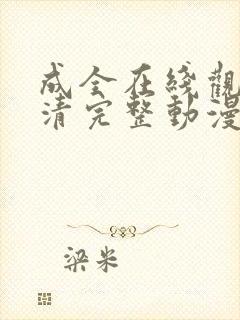 成全在綫觀
清完整動漫
梁米